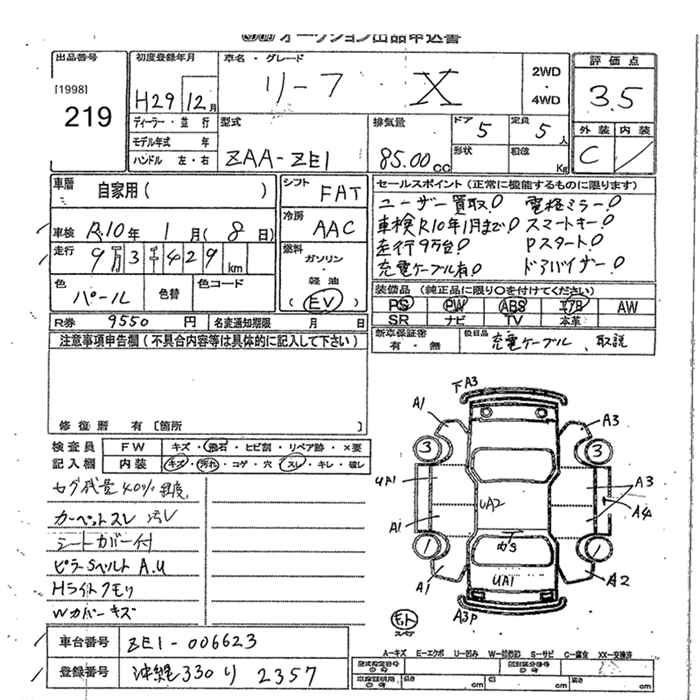 オークション出品申込書
出品番号
[1998]
219
初度登録年月
H29 12月
車名・グレード
リーフ X
2WD
・
4WD
評価点
3.5
ディーラー・並行
モデル年式 年
ハンドル 左・右
型式
ZAA-ZE1
排気量
85.00cc
ドア
5
定員
5人
形状
積載
Kg
外装 内装
C
車歴
自家用( )
シフト
FAT
車検 R.10年 1月(8日)
冷房
AAC
走行
9万3千429km
燃料
ガソリン
・
軽油
(EV)
色
パール
色替
色コード
セールスポイント(正常に機能するものに限ります)
ユーザー買取! 電格ミラー!
車検R10年1月まで! スマートキー!
走行9万台! Pスタート!
充電ケーブル有! ドアバイザー!
装備品(純正品に限り○を付けてください)
PS PW ABS エアB AW
SR ナビ TV 本革
R券 9550円 名変通知期限 月 日
新車保証書
有・無
後日品
充電ケーブル、取説
注意事項申告欄(不具合内容等は具体的に記入して下さい)
修復歴 有[箇所 ]
検査員
記入欄
FW キズ・飛石・ヒビ割・リペア跡・×要
内装 キズ・汚れ・コゲ・穴・スレ・キレ・破レ
セグ残量40%程度
カーペットスレ 汚レ
シートカバー付
ピラーSベルトA.U
Hライトクモリ
Wカバーキズ
下A3
A1
A3
3
3
UA1
A3
UA2
A4
A1
1
1
A1
UA1
A2
A3P
スペア
車台番号
ZE1-006623
登録番号
沖縄330り2357
A-キズ E-エクボ U-凹み W-補修跡 S-サビ C-腐食 XX-交換済
長さ cm 幅 cm 高さ cm